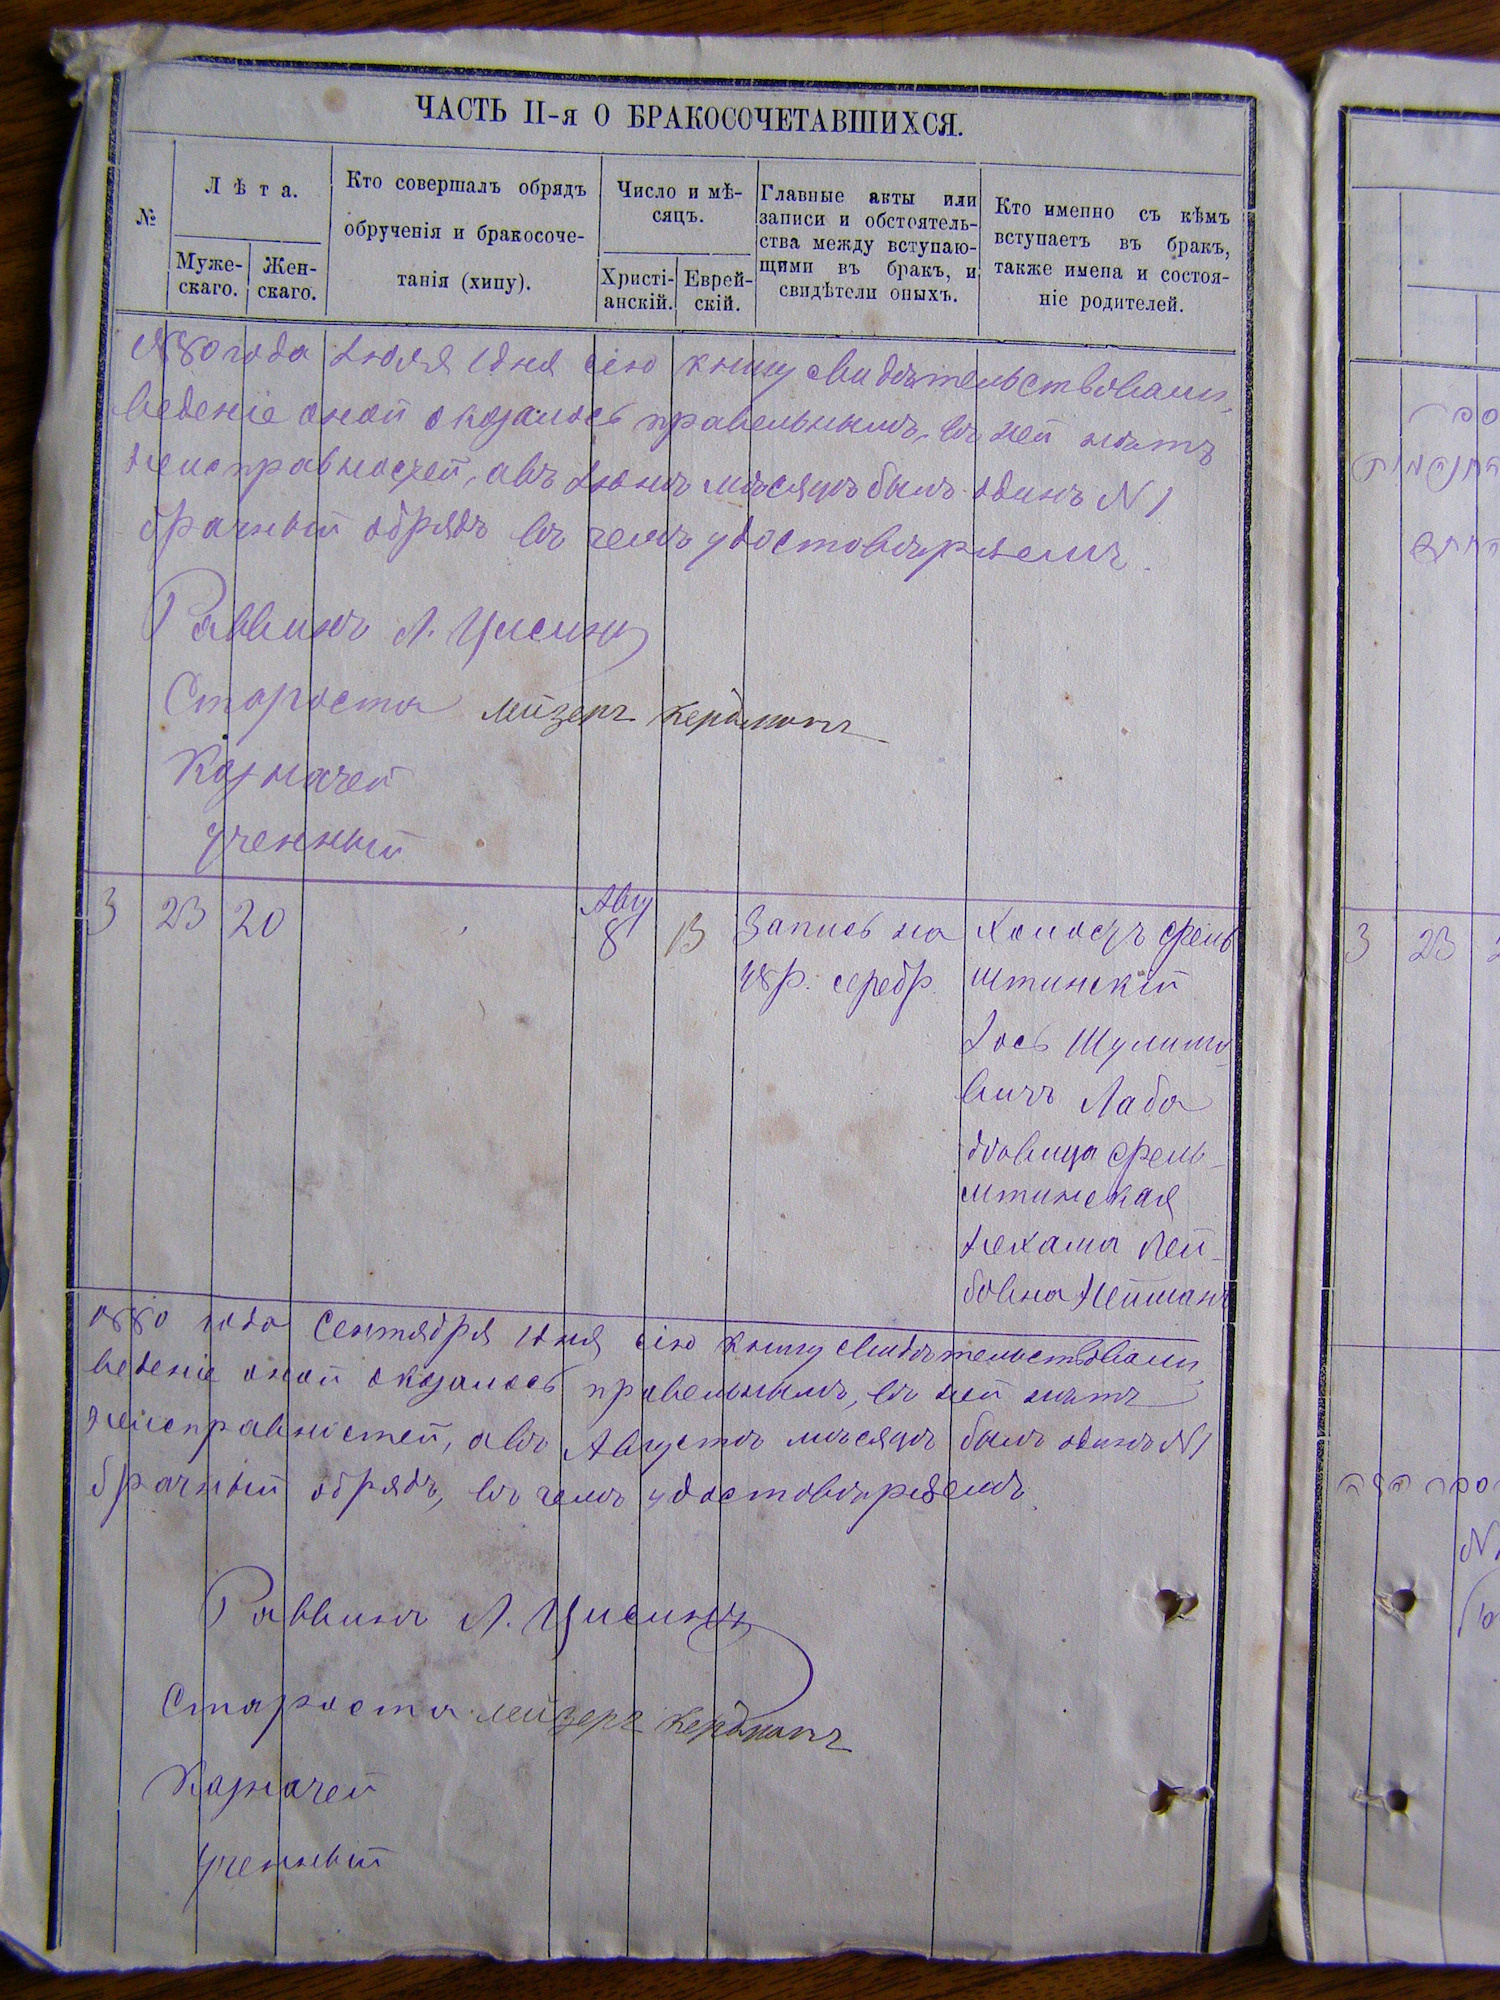 ЧАСТЬ II-я О БРАКОСОЧЕТАВШИХСЯ.
№
Лѣта.
Муже-
скаго.
Жен-
скаго.
Кто совершалъ обрядъ
обрученія и бракосоче-
танія (хипу).
Число и мѣ-
сяцъ.
Христі-
анскій.
Еврей-
скій.
Главные акты или
записи и обстоятель-
ства между вступаю-
щими въ бракъ, и
свидѣтели оныхъ.
Кто именно съ кѣмъ
вступаетъ въ бракъ,
также имена и состоя-
ніе родителей.
1880 года Іюля 1 дня сію книгу свидѣтельствовали,
веденіе оной оказалось правельнымъ, въ ней нѣтъ
неисправностей, авъ Іюнѣ мѣсяцѣ былъ одинъ N 1
брачный обрядъ въ чемъ удостовѣряемъ.
Раввинъ Л. Цисинъ
Староста Лейзеръ Кердманъ
Казначей
Ученный
3 23 20
Авгу
8 13
Запись на
48 р. серебр.
Холостъ Фель
штинскій
Іось Шулимо
вичъ Лаба
вдовица Фель-
штинская
Нехама Лей-
бовна Нейманъ
1880 года Сентября 1 дня сію книгу свидѣтельствовали,
веденіе оной оказалось правельнымъ, въ ней нѣтъ
неисправностей, авъ Августѣ мѣсяцѣ былъ одинъ N 1
брачный обрядъ, въ чемъ удостовѣряемъ.
Раввинъ Л. Цисинъ
Староста Лейзеръ Кердманъ
Казначей
Ученный
3 23